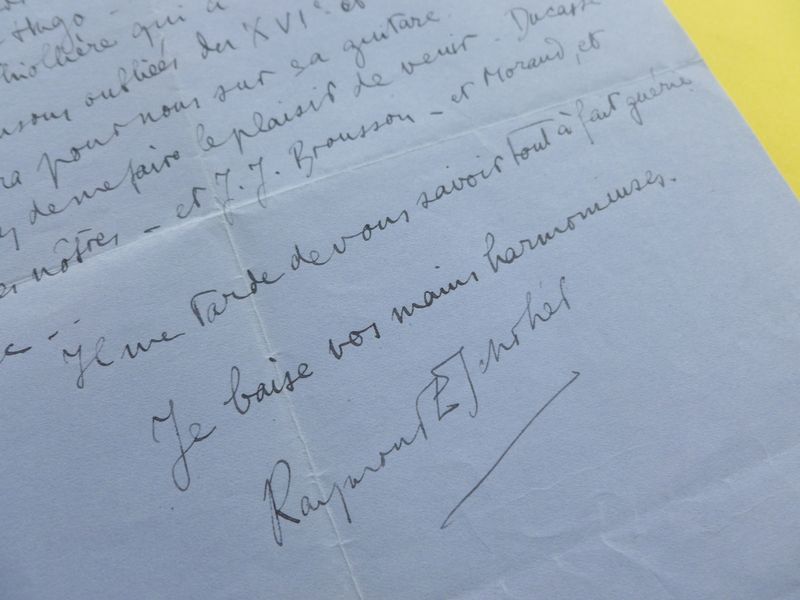 Hugo -
qui a
oubliées du XVIe et
pour nous sur sa guitare.
de me faire le plaisir de venir - Ducasse
nôtres - et J. J. Brousson - et Morand, et
Il me tarde de vous savoir tout à fait guérie.
Je baise vos mains harmonieuses.
Raymond